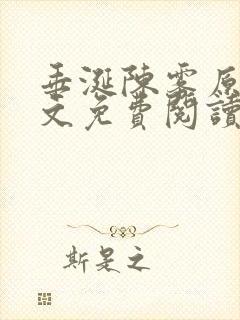 垂涎陳霧原
文免費閱讀
斯是之